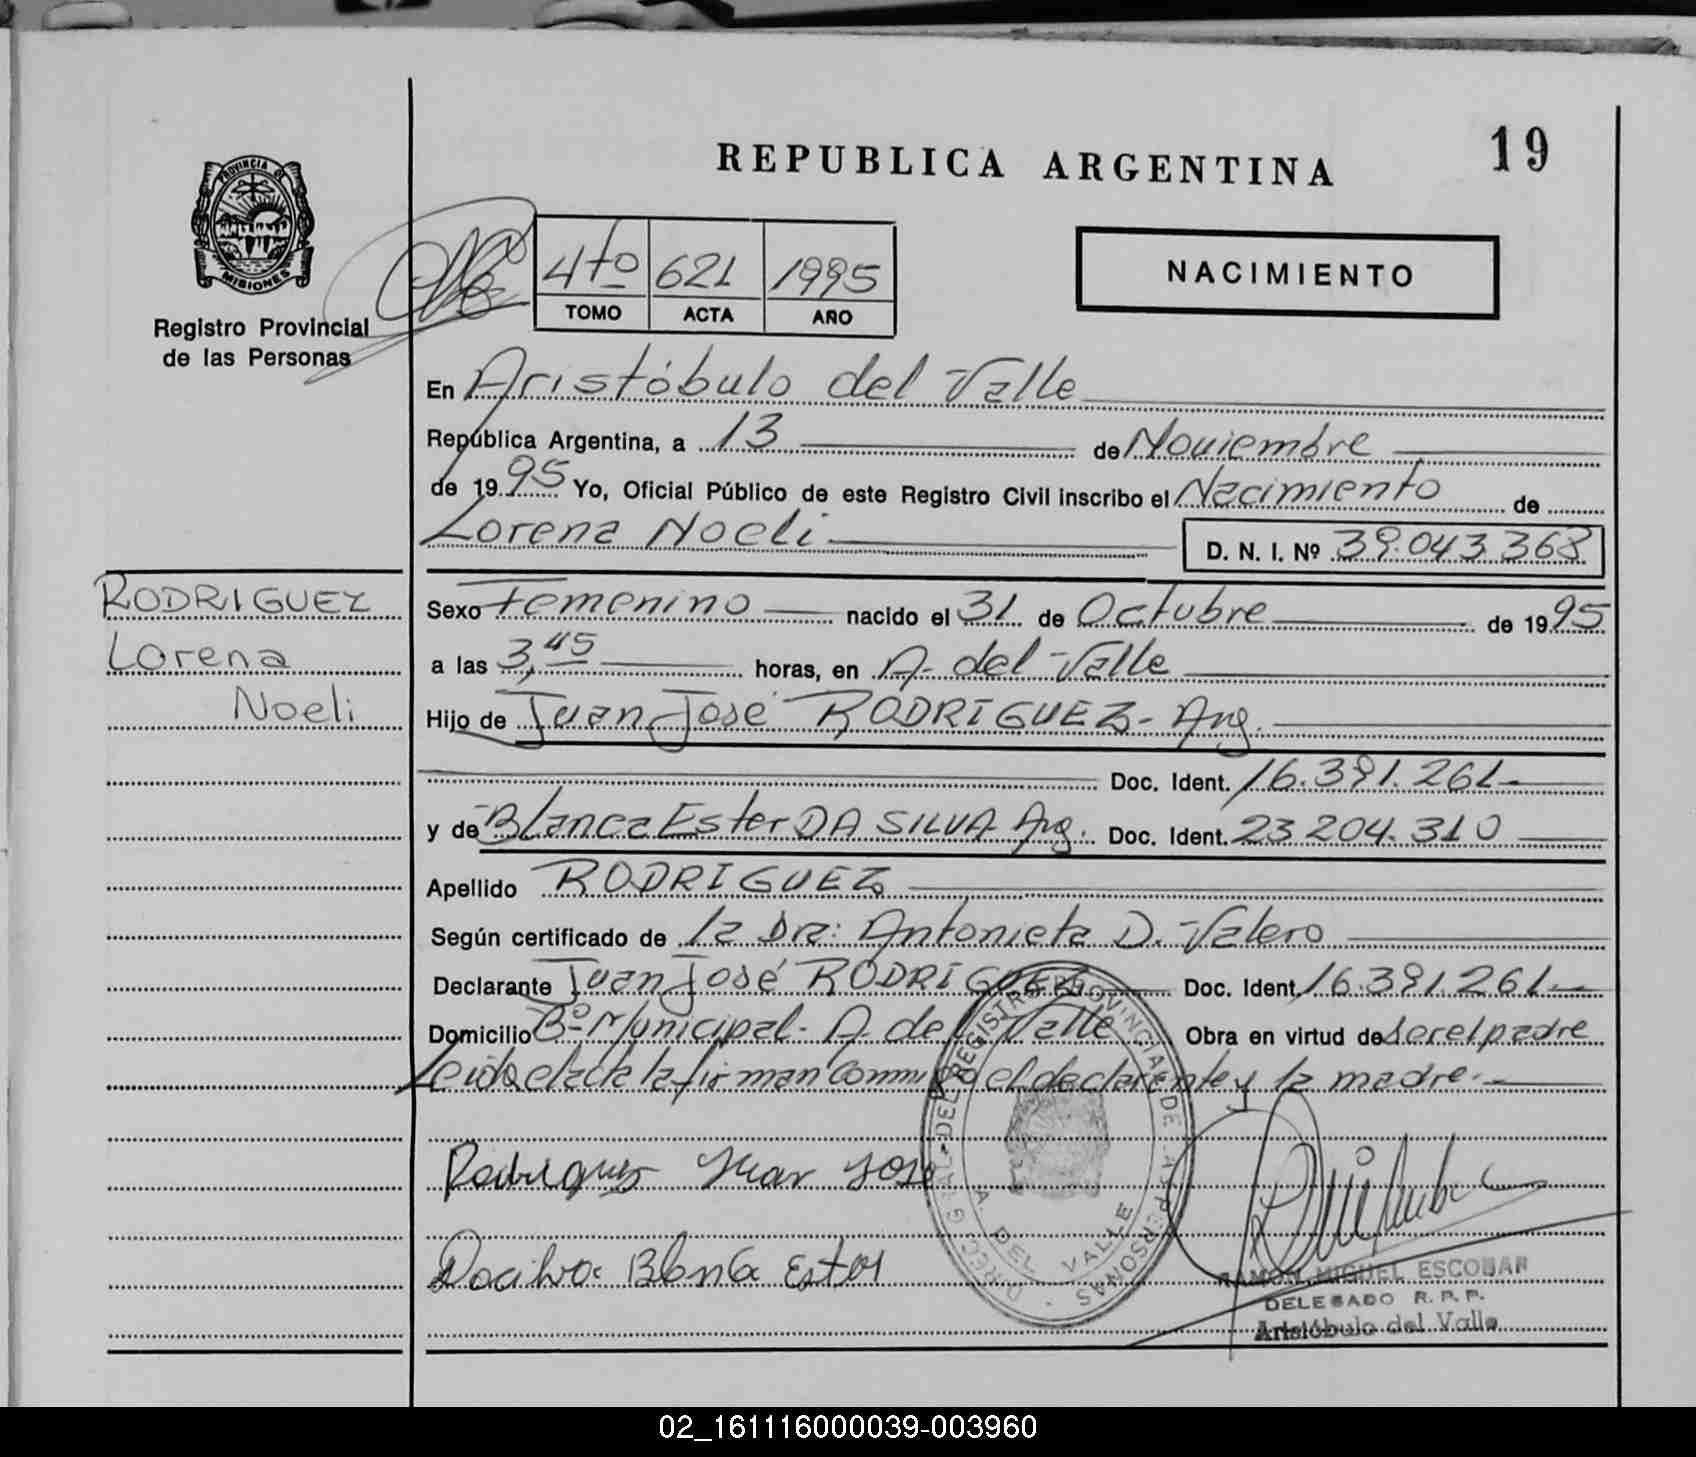 REPUBLICA ARGENTINA
19
PROVINCIA DE
MISIONES
Registro Provincial
de las Personas
4to 621 1995
TOMO ACTA AÑO
NACIMIENTO
En Aristóbulo del Valle
República Argentina, a 13 de Noviembre
de 1995 Yo, Oficial Público de este Registro Civil inscribo el Nacimiento de
Lorena Noeli D. N. I. Nº 39.043.368
RODRIGUEZ
Lorena
Noeli
Sexo Femenino nacido el 31 de Octubre de 1995
a las 3,45 horas, en A. del Valle
Hijo de Juan José RODRIGUEZ - Arg.
Doc. Ident. 16.391.261
y de Blanca Ester DA SILVA Arg. Doc. Ident. 23.204.310
Apellido RODRIGUEZ
Según certificado de la Dra: Antonieta D. Valero
Declarante Juan José RODRIGUEZ Doc. Ident. 16.391.261
Domicilio Bº Municipal - A. del Valle Obra en virtud de ser el padre
Leida el acta la firman conmigo el declarante y la madre.
Rodrigues Juan Jose
Dasilva Blanca Ester
DIREC. GRAL. DEL REGISTRO PROVINCIAL DE LAS PERSONAS
A. DEL VALLE
RAMON MIGUEL ESCOBAR
DELEGADO R. P. P.
Aristóbulo del Valle
02_161116000039-003960